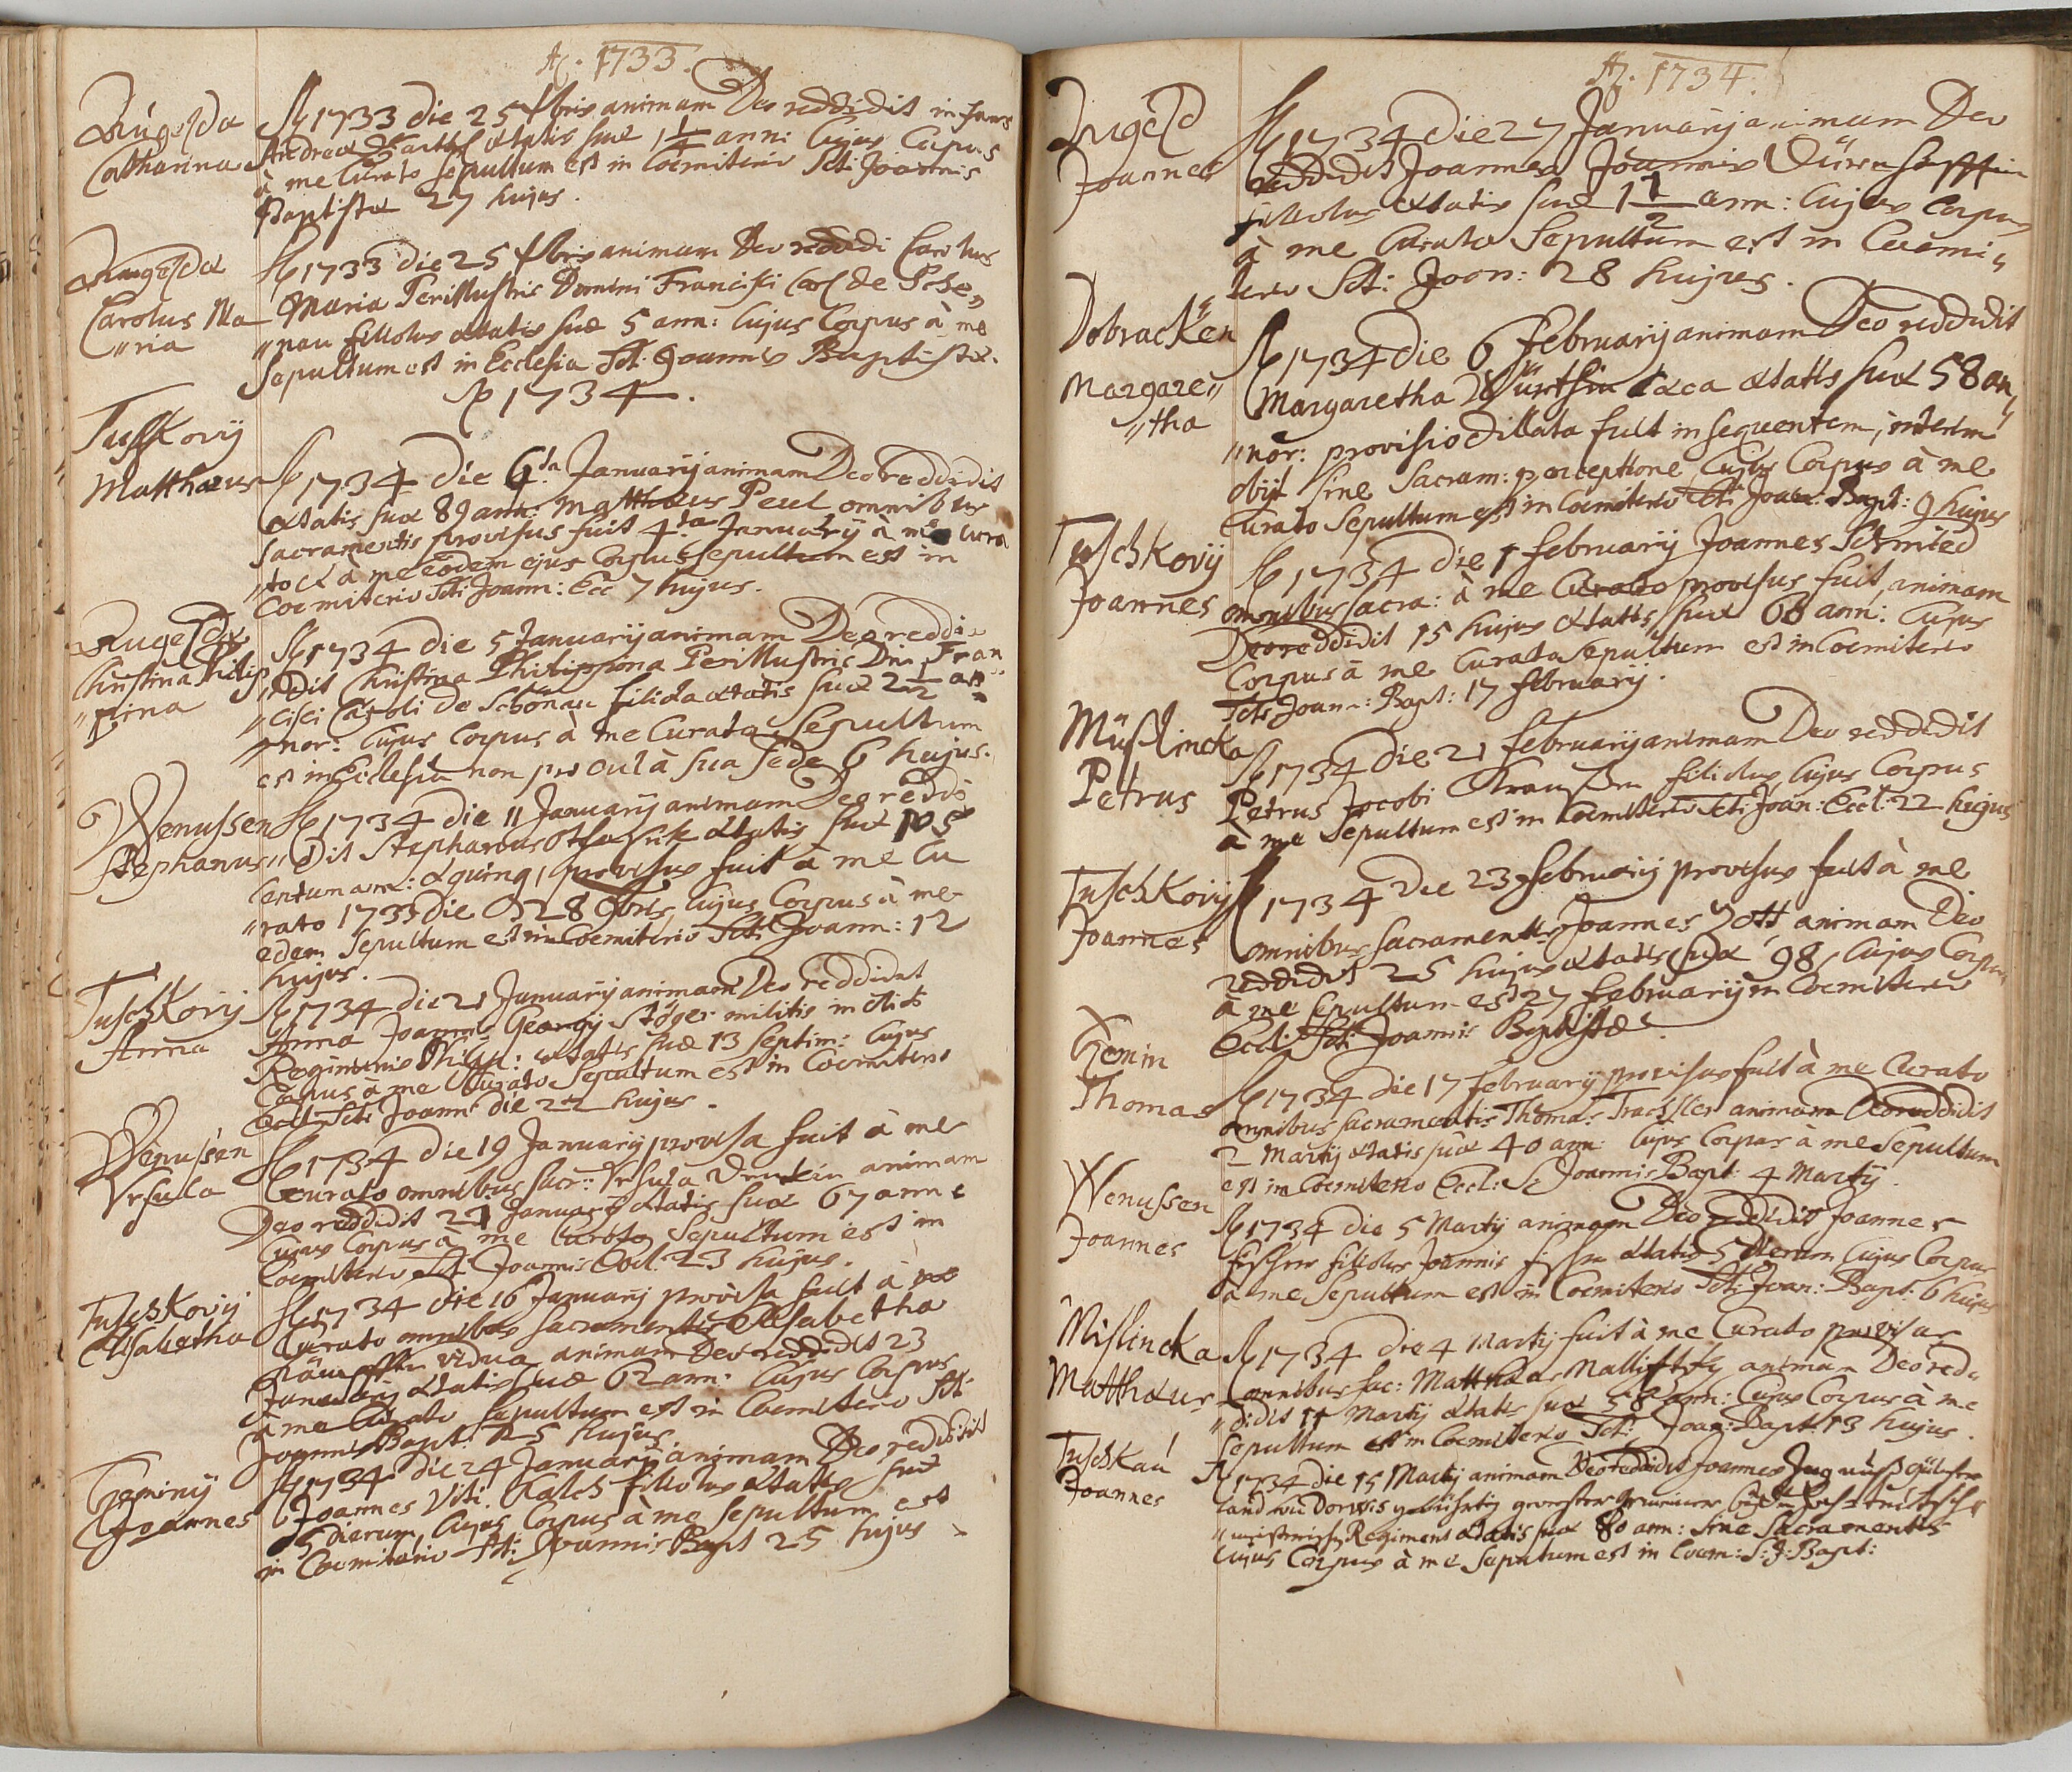 Aõ. 1733.
Catharina
Aõ 1733 die 25 Xbris animam Deo reddidit infans
Andreæ ætatis suæ 1 1/4 ann: Cujus Corpus
à me Curato sepultum est in Coemiterio Scti Joannis
Baptistæ 27 hujus.
Carolus Ma
„ria
Aõ 1733 die 25 Xbris animam Deo reddidi Carolus
Maria Perillustris Domini Francisci Carl de Sche„
„nau filiolus ætatis suæ 5 ann: Cujus Corpus à me
Sepultum est in Ecclesia Scti Joannis Baptistæ.
Aõ 1734.
Tusskovij
Matthæus
Aõ 1734 die 6ta Januarij animam Deo reddidit
ætatis suæ 89 ann: Matthæus Peul omnibus
sacramentis provisus fuit 4ta Januarij à me Cura
„to et à me eodem ejus Corpus sepultum est in
Coemiterio Scti Joann: Ecc 7 hujus.
Christina Philip
„pina
Aõ 1734 die 5 Januarij animam Deo reddi„
„dit Christina Philippina Perillustris Dni Fran
„cisci Caroli de Schönau filiola ætatis suæ 2 1/2 an
„nor: Cujus Corpus à me Curato Sepultum
est in Ecclesia non procul à sua sede 6 hujus.
Wenussen
Stephanus
Aõ 1734 die 11 Januarij animam Deo reddi
„dit Stephanus ætatis suæ 105
Centum ann: et quinq, provisus fuit à me Cu
„rato 1733 die 28 9bris, Cujus Corpus à me
edem sepultum est in Coemiterio Scti Joann: 12
hujus.
Tuschkovij
Anna
Aõ 1734 die 21 Januarij animam Deo reddidit
Anna Joannis Georgij Stöger militis in
Regiminis Philipp: ætatis suæ 13 Septim: Cujus
Corpus à me Curato Sepultum est in Coemiterio
Eccl: Scti Joann: die 22 hujus.
Wenussen
Ursula
Aõ 1734 die 19 Januarij provisa fuit à me
Curato omnibus sacr: Ursula animam
Deo reddidit 21 Januarij ætatis suæ 67 ann:
Cujus Corpus à me Curato Sepultum est in
Coemiterio Sct Joannis Eccl: 23 hujus.
Tuschkovij
Elisabetha
Aõ 1734 die 16 Januarij provisa fuit à me
Curato omnibus sacramentis Elisabetha
vidua animam Deo reddidit 23
Januarij ætatis suæ 62 ann: Cujus Corpus
à me Curato Sepultum est in Coemiterio Scti
Joannis Bapt: 25 hujus.
Geminij
Joannes
Aõ 1734 die 24 Januarij animam Deo reddidit
Joannes Viti Kalch filiolus ætatis suæ
5 dierum, Cujus Corpus à me sepultum est
in Coemiterio Scti Joannis Bapt 25 hujus
Aõ. 1734.
Joannes
Aõ 1734 die 27 Januarij animam Deo
reddidit Joannes Joannis
filiolus ætatis suæ 1 1/2 ann: Cujus Corpus
à me Curato Sepultum est in Coemi„
„terio Sct: Joan: 28 hujus.
Dobracken
Margare„
„tha
Aõ 1734 die 6 Februarij animam Deo reddidit
Margaretha cæca ætatis suæ 58 an„
„nor: provisio dillata fuit in sequentem, interim
obijt sine Sacram: perceptione Cujus Corpus à me
Curato Sepultum est in Coemiterio Scti Joan: Bapt: 9 hujus
Tuschkovij
Joannes
Aõ 1734 die 1 Februarij Joannes Schmied
omnibus sacra: à me Curato provisus fuit, animam
Deo reddidit 15 hujus ætatis suæ 68 ann: Cujus
Corpus à me Curato Sepultum est in Coemiterio
Scti Joann: Bapt: 17 Februarij.
Müsslincka
Petrus
Aõ 1734 die 21 Februarij animam Deo reddidit
Petrus Jacobi filiolus Cujus Corpus
à me Sepultum est in Coemiterio Scti Joan: Eccl: 22 hujus
Tuschkovij
Joannes
Aõ 1734 die 23 Februarij provisus fuit à me
omnibus sacramentis Joannes Zott animam Deo
reddidit 25 hujus ætatis suæ 98, Cujus Corpus
à me sepultum est 27 Februarij in Coemiterio
Eccl: Scti Joannis Baptistæ.
Gemin
Thomas
Aõ 1734 die 17 Februarij provisus fuit à me Curato
omnibus sacramentis Thomas Traxsler animam Deo reddidit
2 Martij ætatis suæ 40 ann: Cujus Corpus à me Sepultum
est in Coemiterio Eccl: S: Joannis Bapt: 4 Martij.
Wenussen
Joannes
Aõ 1734 die 5 Martij animam Deo reddidit Joannes
filiolus Joannis ætatis 5 dierum Cujus Corpus
à me Sepultum est in Coemiterio Scti Joan: Bapt: 6 hujus
Mislincka
Matthæus
Aõ 1734 die 4 Martij fuit à me Curato provisus
omnibus sac: Matthæus animam Deo red„
„didit 11 Martij ætatis suæ 58 ann: Cujus Corpus à me
Sepultum est in Coemiterio Scti Joan: Bapt: 13 hujus.
Tuschkaú
Joannes
Aõ 1734 die 15 Martij animam Deo reddidit Joannes
Regiment ætatis suæ 80 ann: sine Sacramentis
Cujus Corpus à me Sepultum est in Coem: S: J: Bapt: